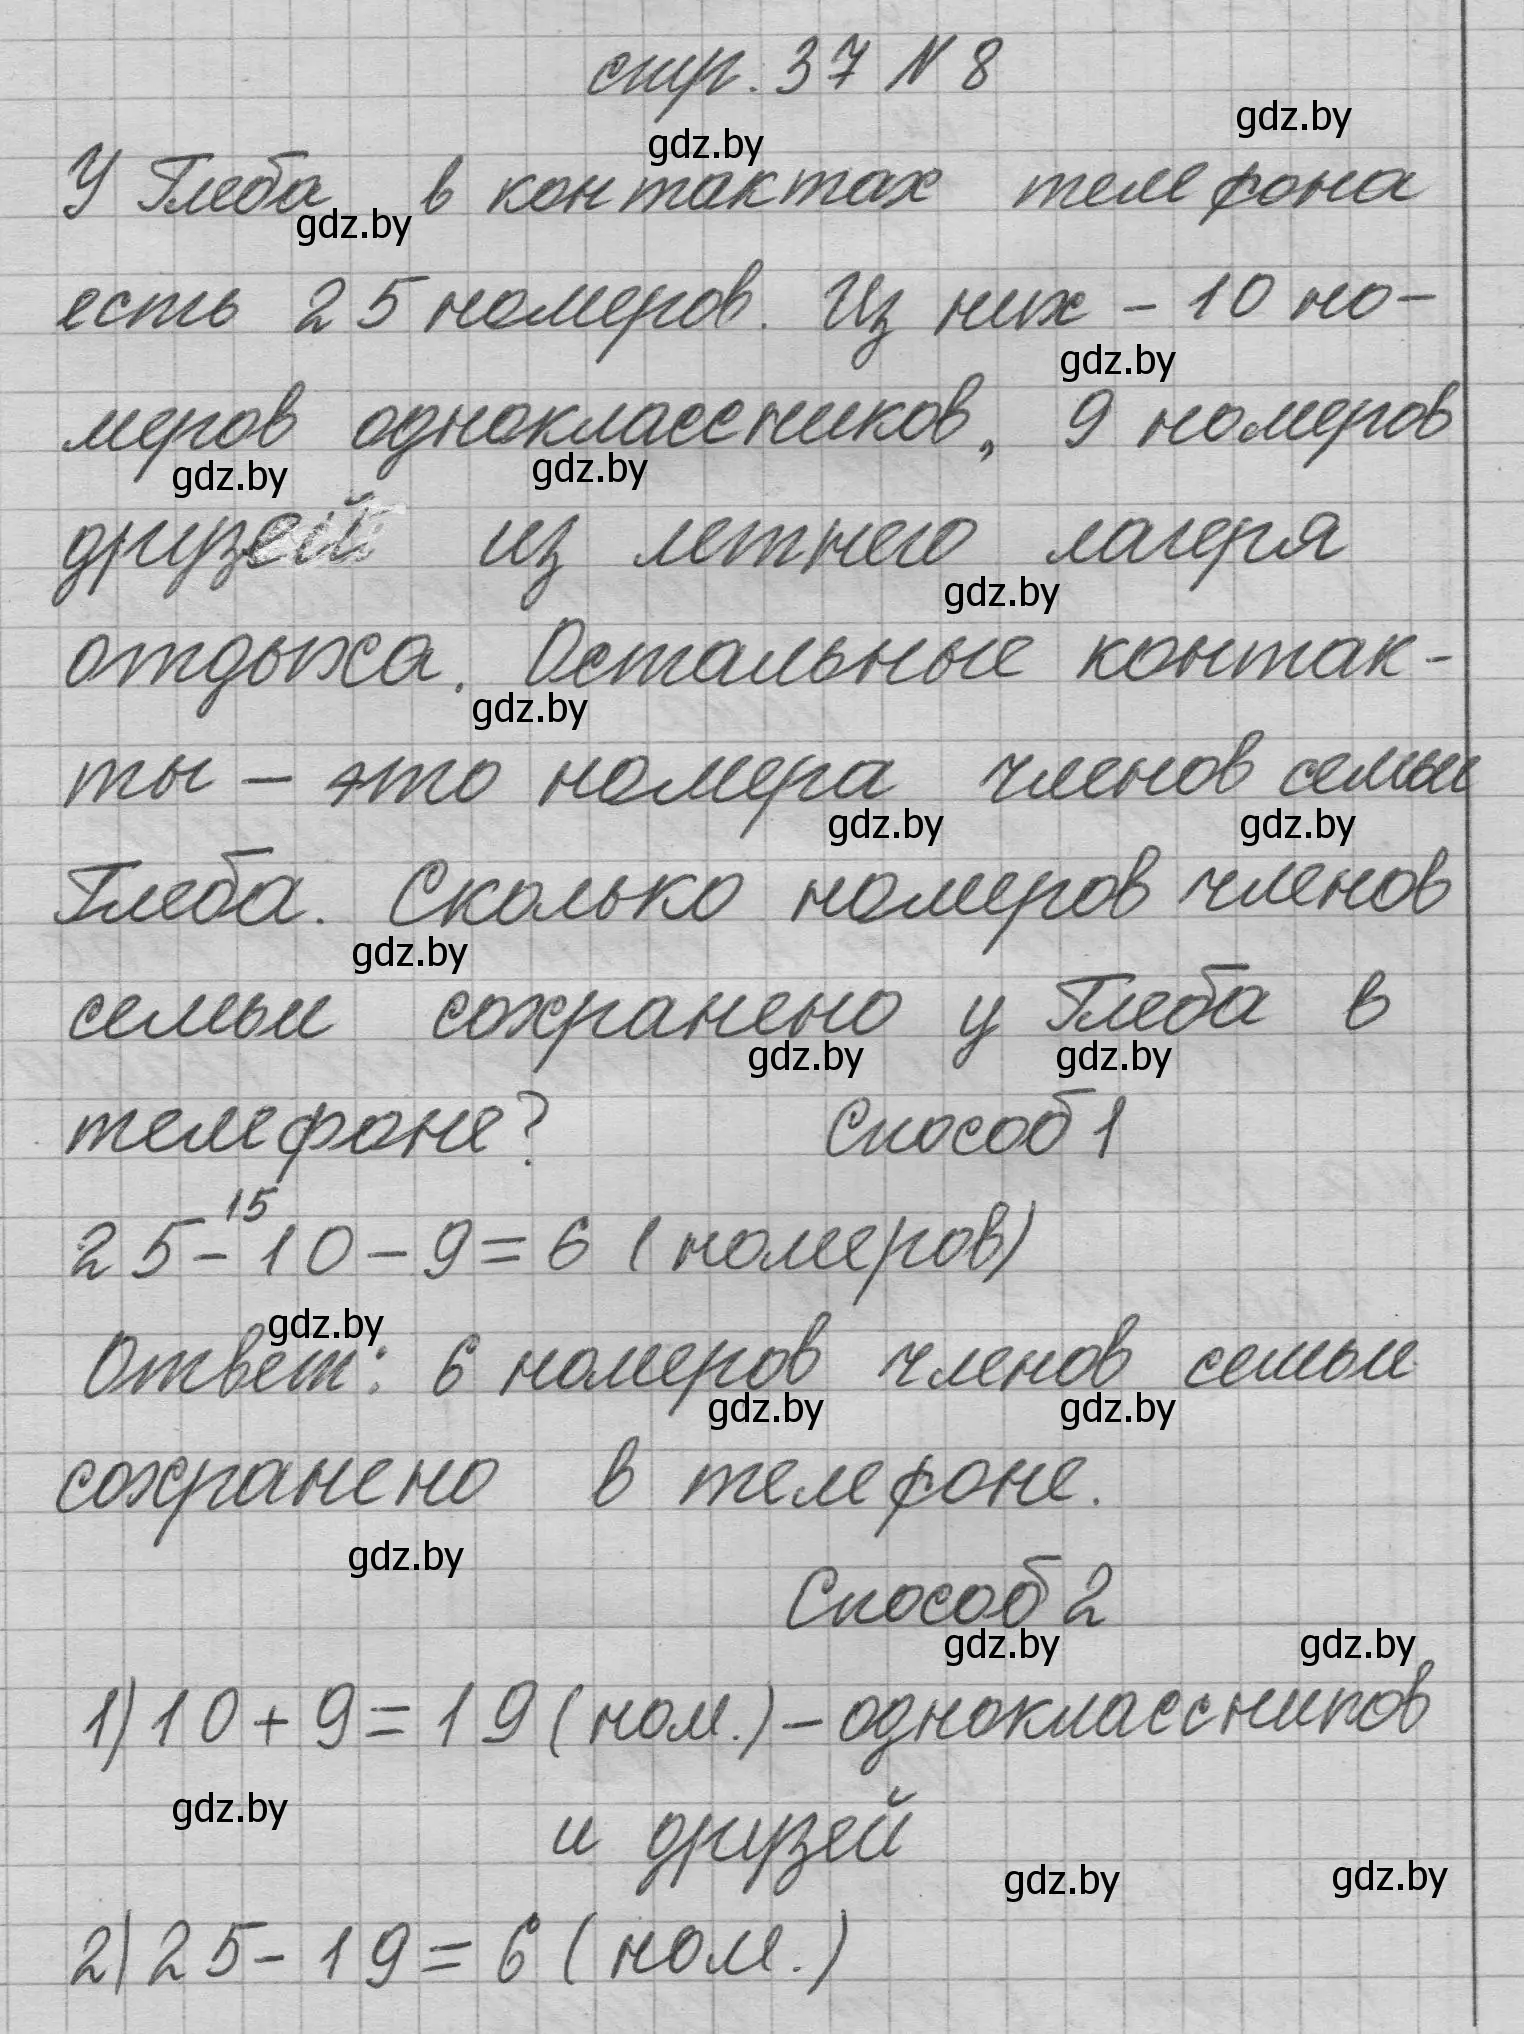 стр. 37 № 8
gdz.by
gdz.by
У Глеба в контактах телефона
gdz.by
есть 25 номеров. Из них – 10 но-
gdz.by
меров одноклассников, 9 номеров
gdz.by gdz.by
друзей из летнего лагеря
gdz.by
отдыха. Остальные контак-
gdz.by
ты – это номера членов семьи
gdz.by gdz.by
Глеба. Сколько номеров членов
gdz.by
семьи сохранено у Глеба в
gdz.by gdz.by
телефоне? Способ 1
15
25 - 10 - 9 = 6 (номеров)
gdz.by
Ответ: 6 номеров членов семьи
gdz.by gdz.by
сохранено в телефоне.
gdz.by
Способ 2
gdz.by gdz.by
1) 10 + 9 = 19 (ном.) – одноклассников
gdz.by
и друзей
gdz.by gdz.by
2) 25 - 19 = 6 (ном.)